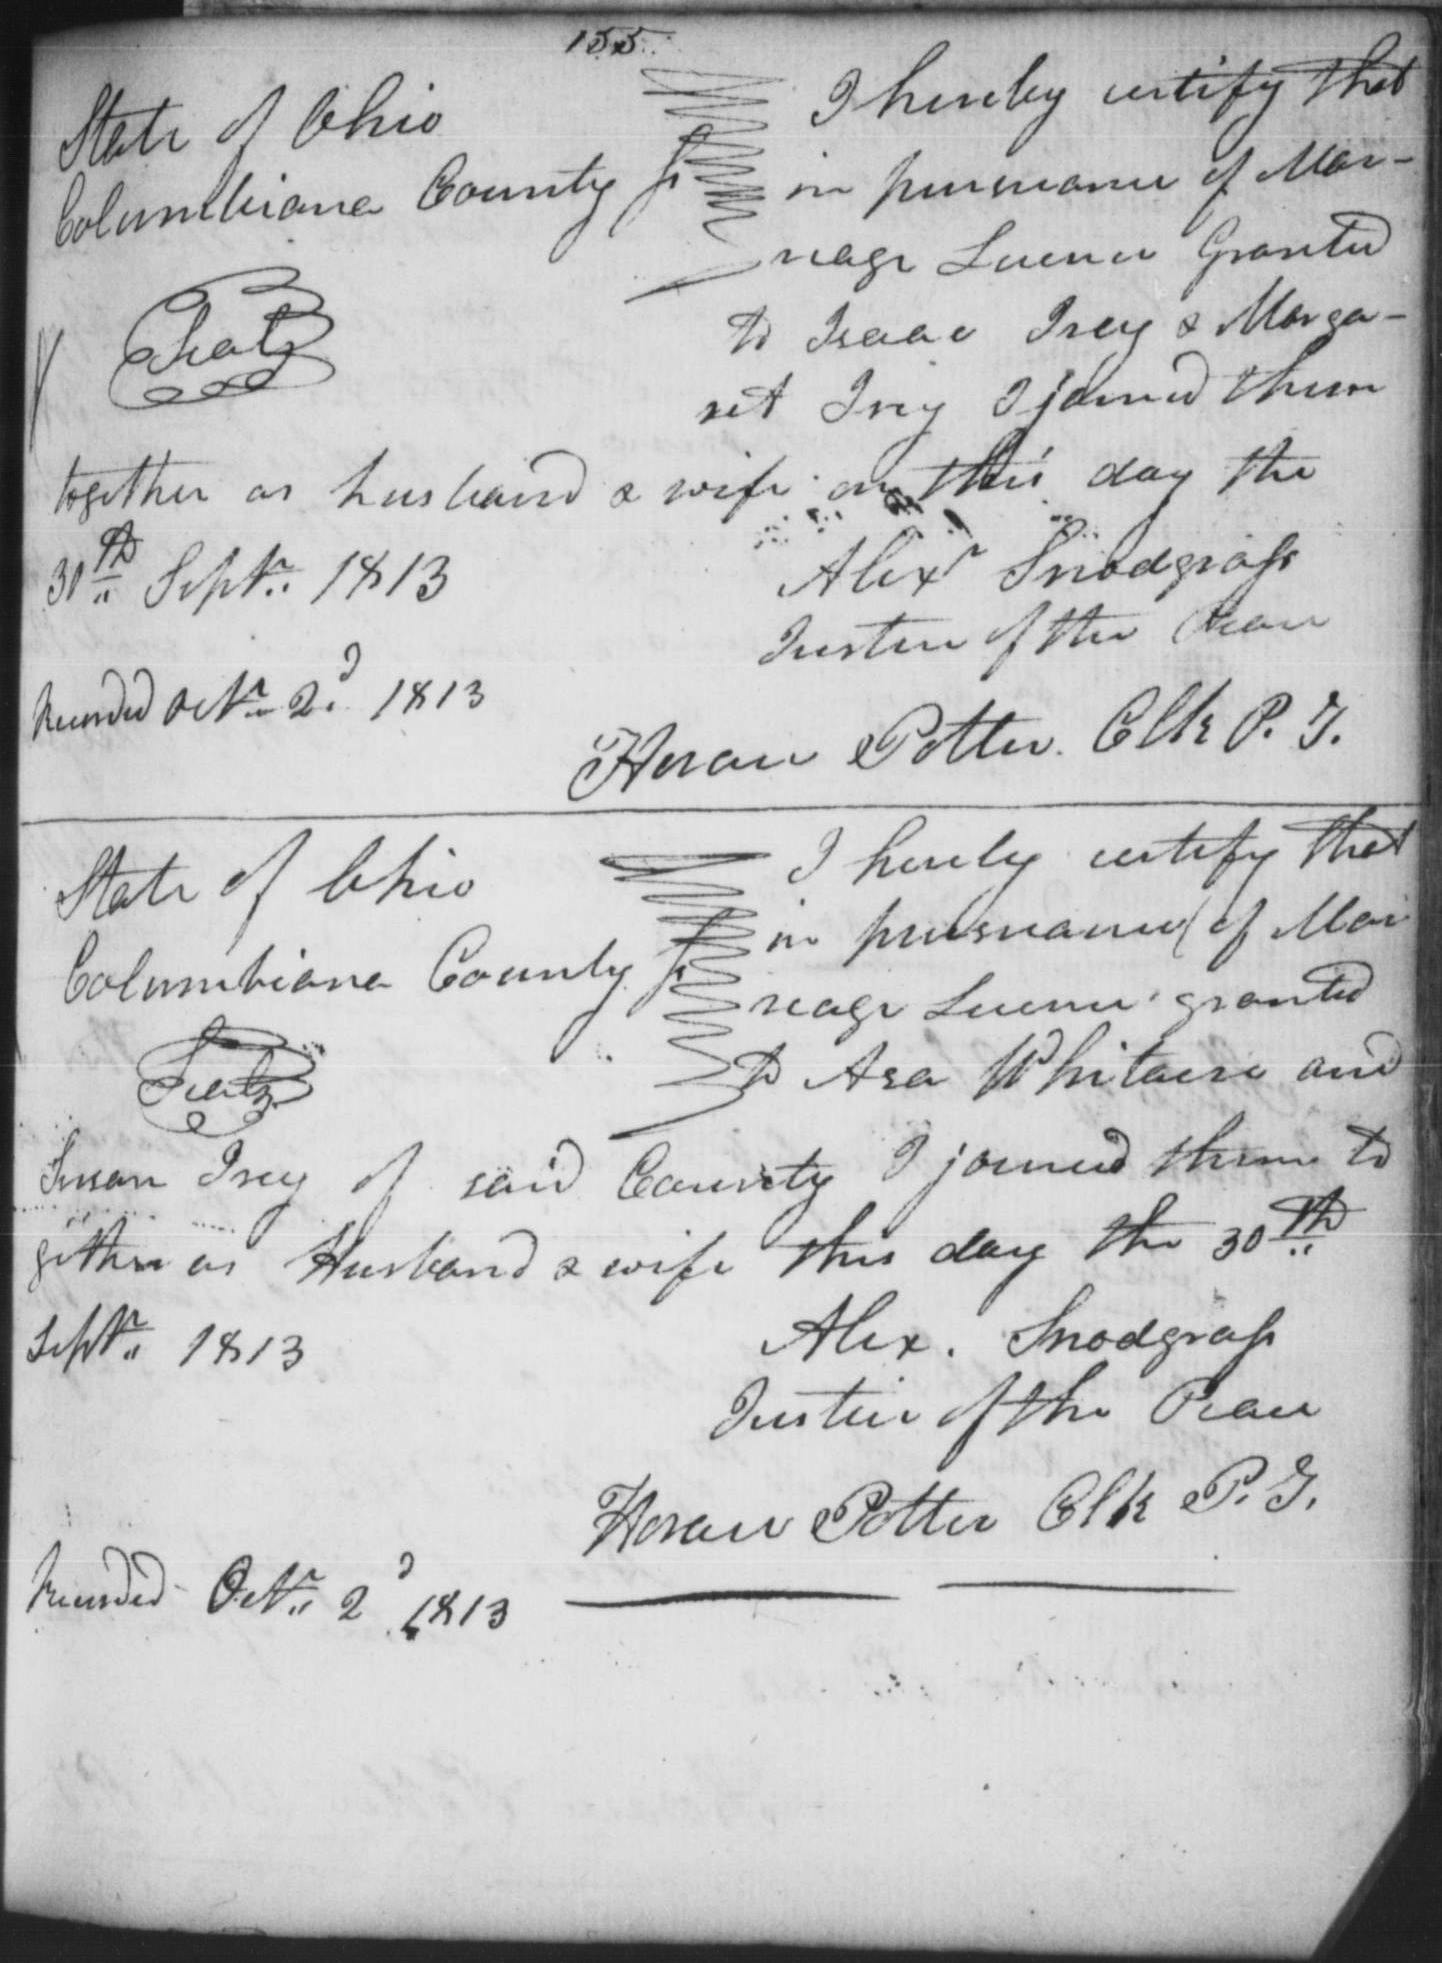 155
State of Ohio
Columbiana County ss
Seal
I hereby certify that
in pursuance of Mar-
reage Licence Granted
to Isaac Irey & Marga-
ret Irey I joined them
together as husband & wife on this day the
30th Septr. 1813
Alexr Snodgrass
Justice of the Peace
Recorded Octr. 2d 1813
Horace Potter. Clk P. T.
State of Ohio
Columbiana County ss
Seal
I hereby certify that
in pursuance of Mar
reage Licence granted
to Asa Whitacre and
Susan Irey of said County I joined them to
gether as Husband & wife this day the 30th
Septr. 1813
Alex. Snodgrass
Justice of the Peace
Horace Potter Clk P. T.
Recorded Octr. 2d 1813